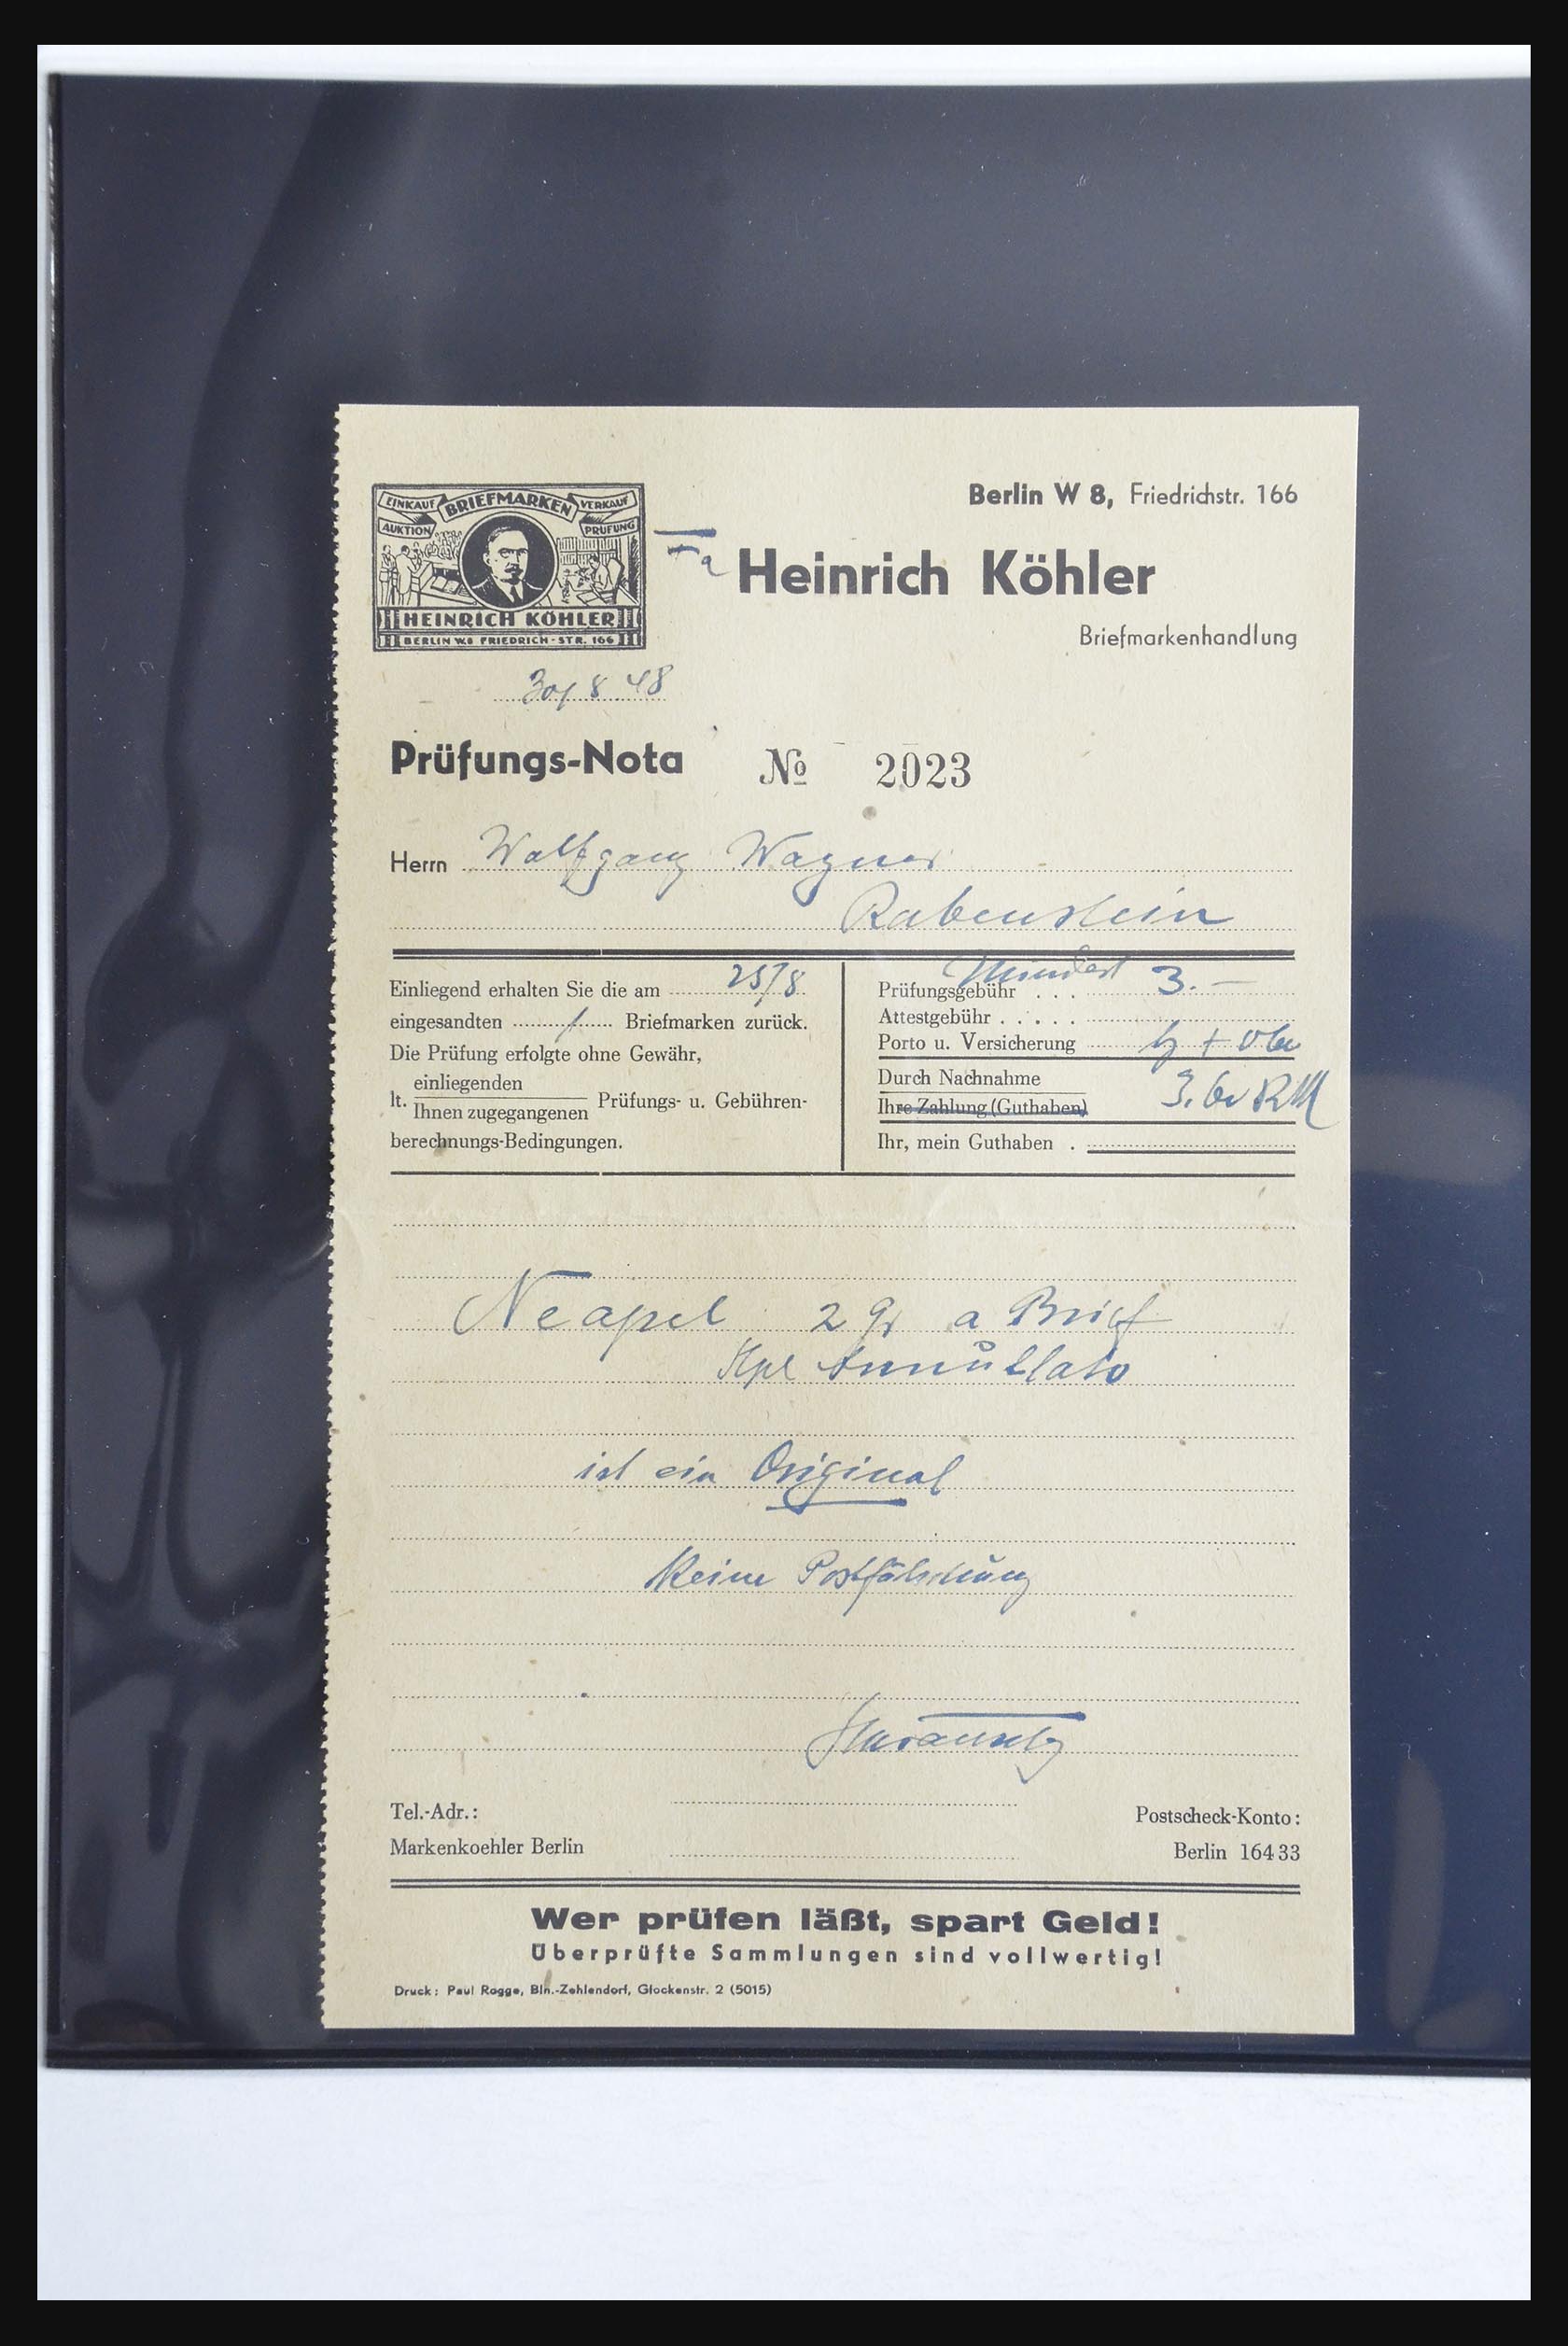 EINKAUF BRIEFMARKEN VERKAUF
AUKTION PRÜFUNG
HEINRICH KÖHLER
BERLIN W.8 FRIEDRICH-STR. 166
Berlin W 8, Friedrichstr. 166
Fa Heinrich Köhler
Briefmarkenhandlung
30/8 48
Prüfungs-Nota № 2023
Herrn Wolfgang Wagner
Rabenstein
Einliegend erhalten Sie die am 25/8
eingesandten 1 Briefmarken zurück.
Die Prüfung erfolgte ohne Gewähr,
einliegenden
lt. Ihnen zugegangenen Prüfungs- u. Gebühren-
berechnungs-Bedingungen.
Mindest
Prüfungsgebühr . . . 3.—
Attestgebühr . . . . .
Porto u. Versicherung
Durch Nachnahme
Ihre Zahlung (Guthaben)
Ihr, mein Guthaben .
Neapel 2 Gr a Brief
Stpl Annullato
ist ein Original
Keine Postfälschung
Tel.-Adr.:
Markenkoehler Berlin
Postscheck-Konto:
Berlin 164 33
Wer prüfen läßt, spart Geld!
Überprüfte Sammlungen sind vollwertig!
Druck: Paul Rogge, Bln.-Zehlendorf, Glockenstr. 2 (5015)